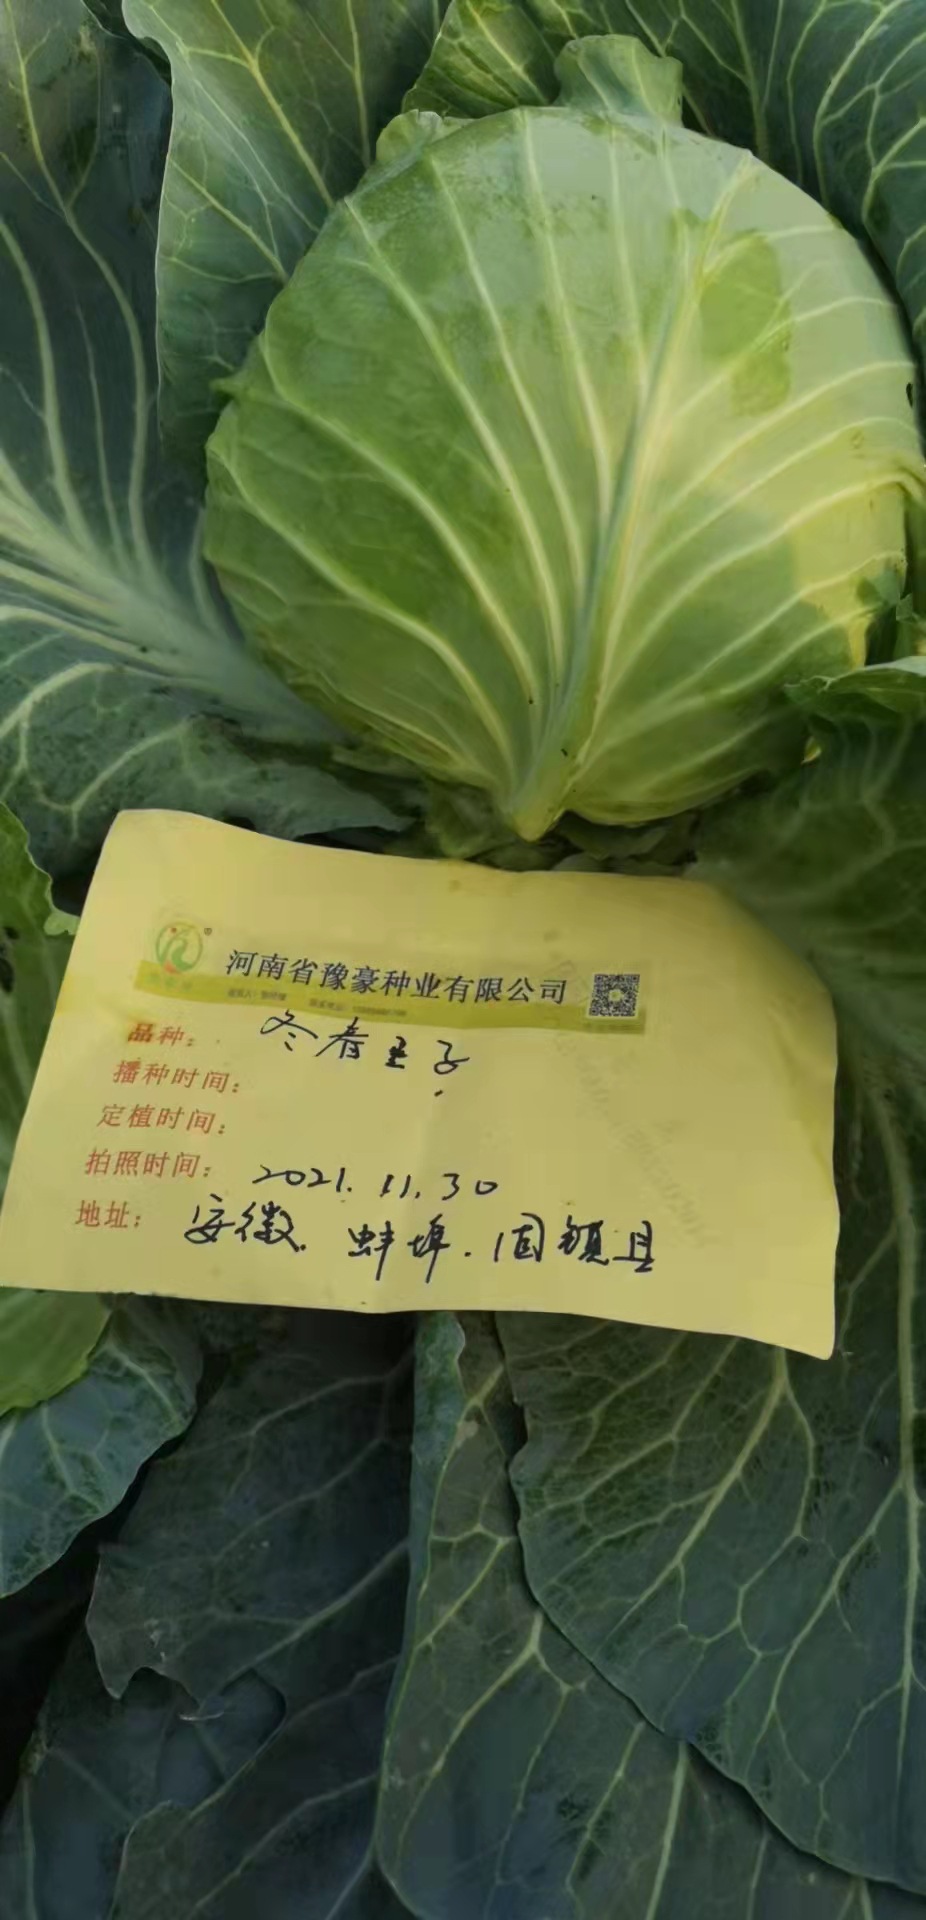 河南省豫豪种业有限公司
品种： 冬春王子
播种时间：
定植时间：
拍照时间： 2021.11.30
地址： 安徽.蚌埠.固镇县